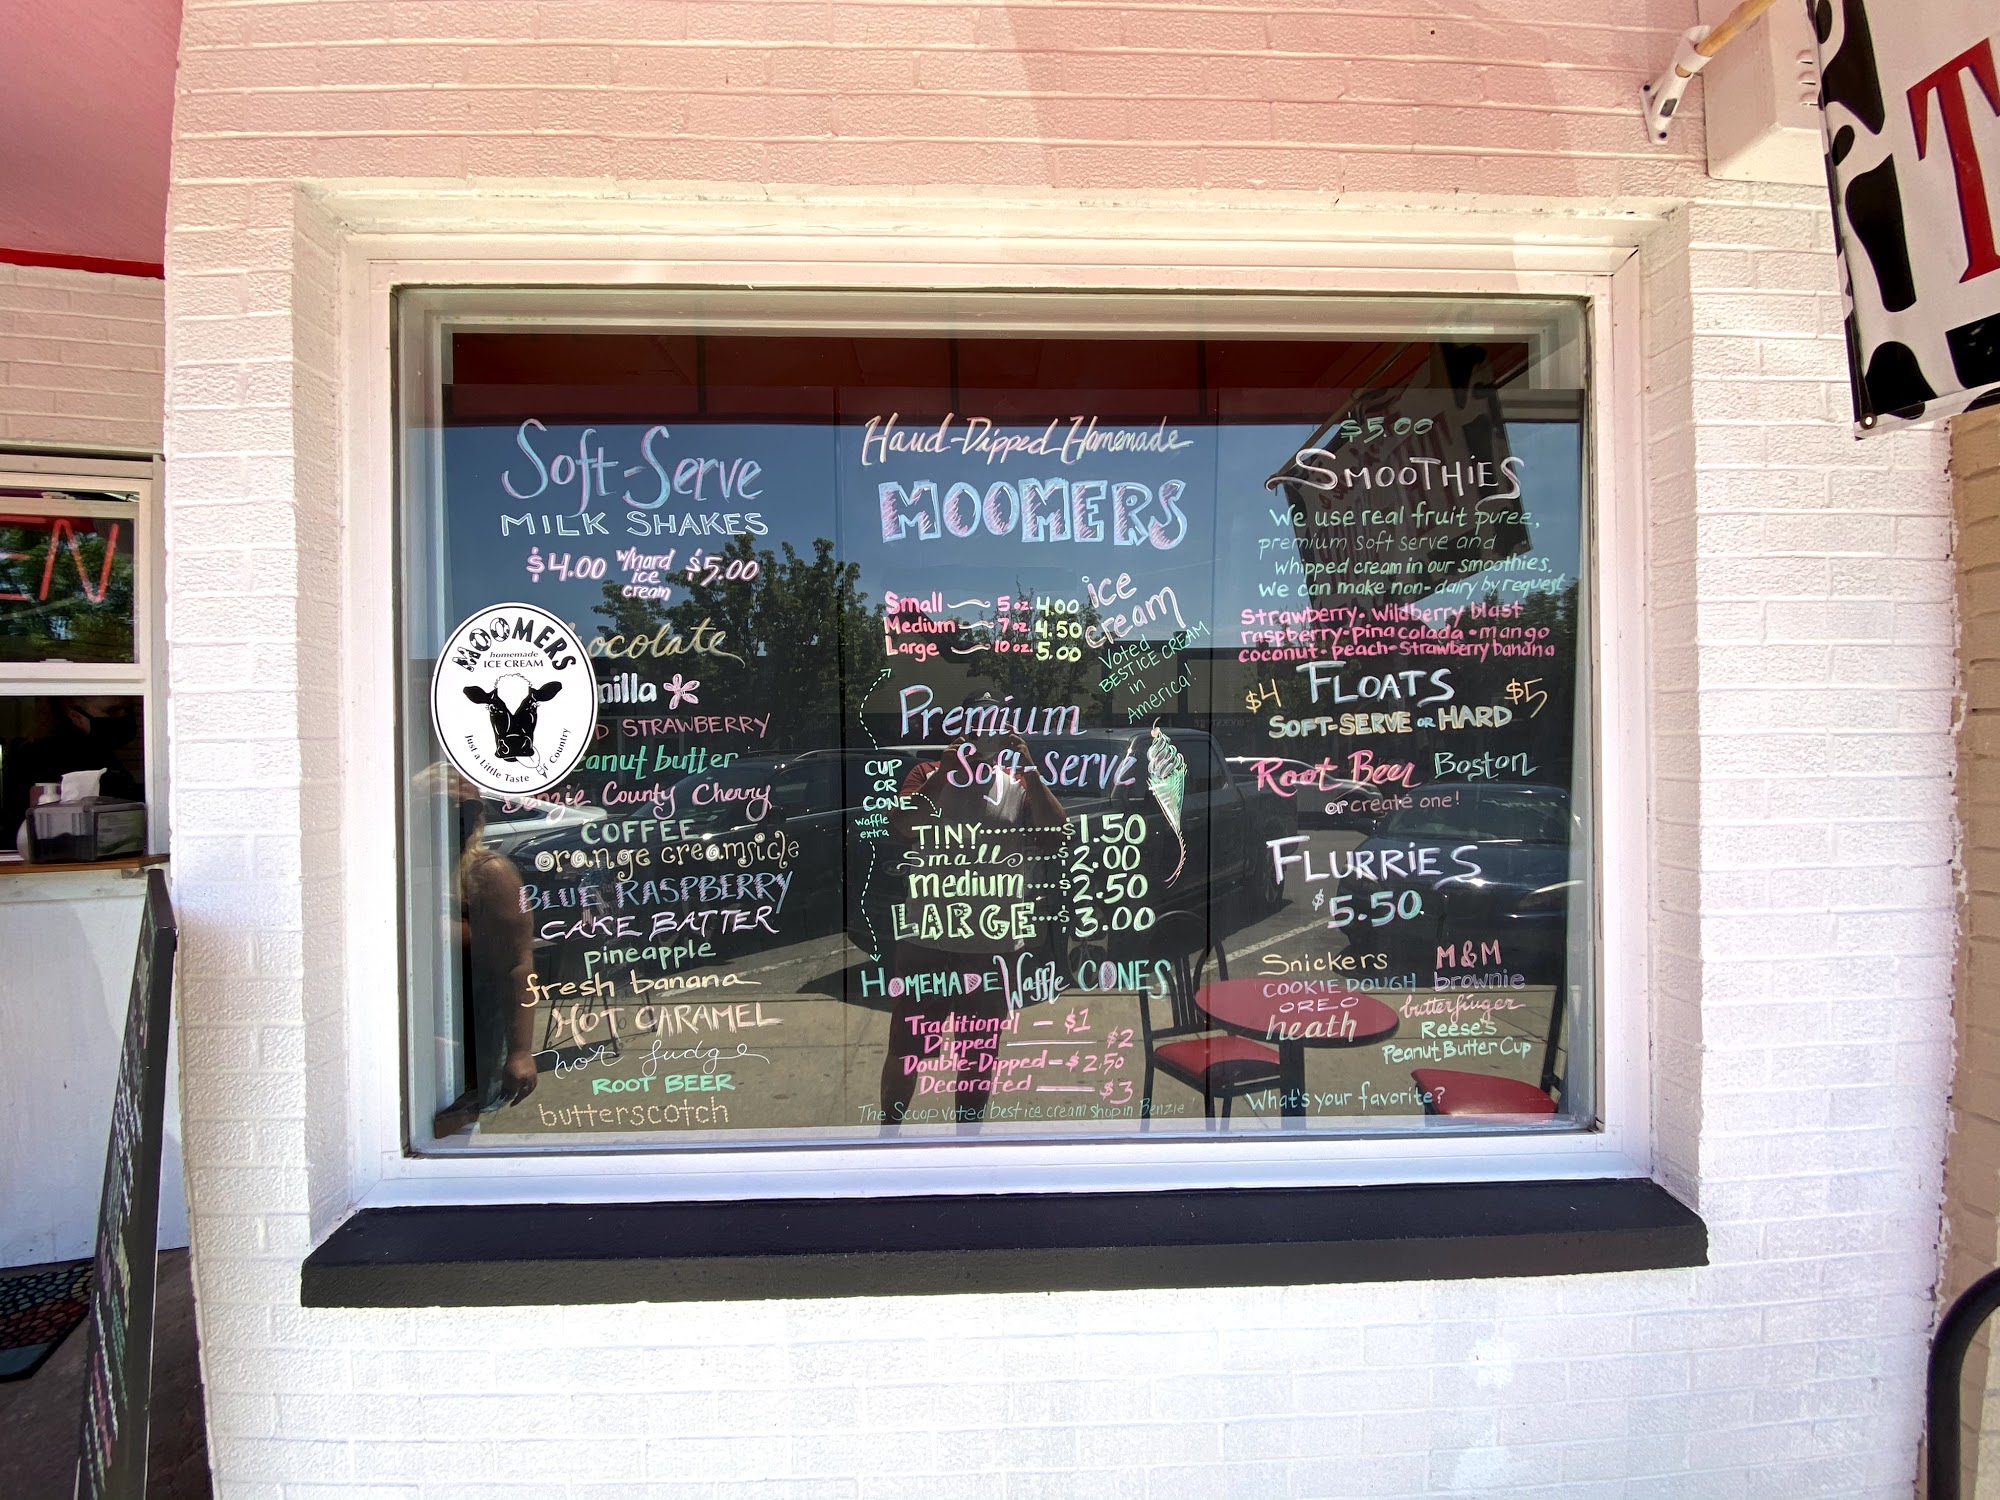 Soft-Serve
MILK SHAKES
$4.00 w/hard ice cream $5.00
ocolate
nilla
D STRAWBERRY
eanut butter
Benzie County Cherry
COFFEE
orange creamsicle
BLUE RASPBERRY
CAKE BATTER
pineapple
fresh banana
HOT CARAMEL
hot fudge
ROOT BEER
butterscotch
MOOMERS
homemade
ICE CREAM
Just a Little Taste of Country
Hand-Dipped Homemade
MOOMERS
ice cream
Small 5 oz. 4.00
Medium 7 oz. 4.50
Large 10 oz. 5.00
Voted
BEST ICE CREAM
in
America!
Premium
Soft-serve
CUP
OR
CONE
waffle
extra
TINY........$1.50
small....$2.00
medium....$2.50
LARGE...$3.00
HOMEMADE Waffle CONES
Traditional — $1
Dipped — $2
Double-Dipped — $2.50
Decorated — $3
The Scoop voted best ice cream shop in Benzie
$5.00
SMOOTHiES
We use real fruit puree,
premium soft serve and
whipped cream in our smoothies.
We can make non-dairy by request
Strawberry • Wildberry blast
raspberry • pina colada • mango
coconut • peach • Strawberry banana
$4 FLOATS $5
SOFT-SERVE OR HARD
Root Beer Boston
or create one!
FLURRiES
$5.50
Snickers M&M
COOKIE DOUGH brownie
OREO butterfinger
heath Reese's
Peanut Butter Cup
What's your favorite?
EN
T